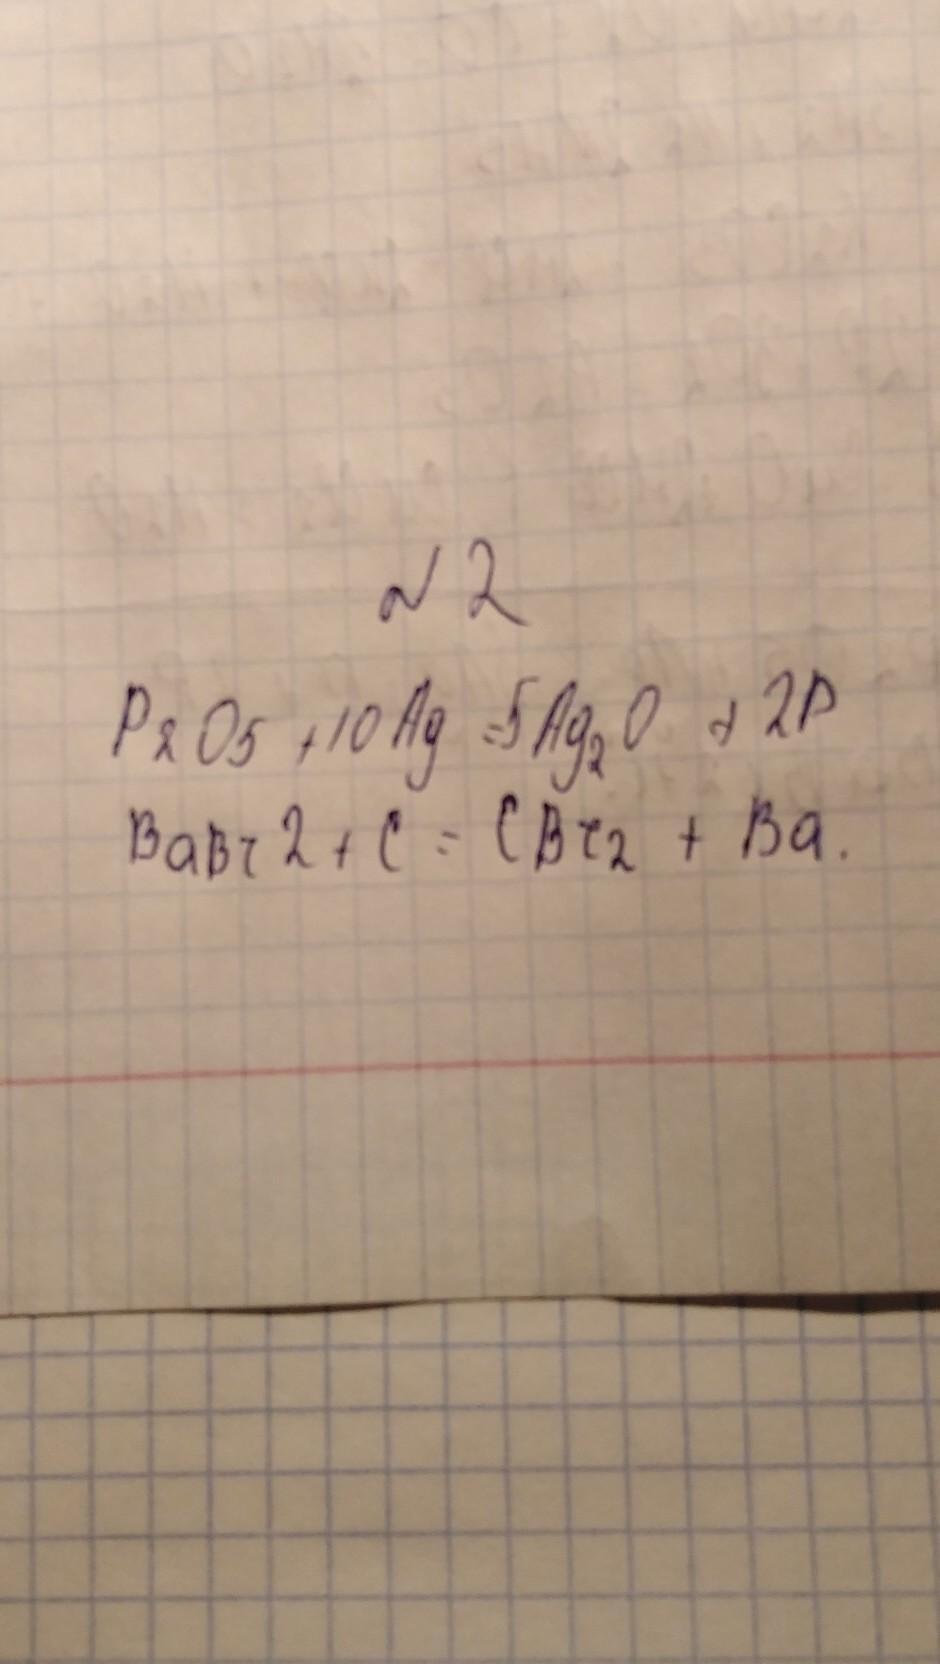 №2
P₂O₅ + 10Ag = 5Ag₂O + 2P
BaBr2 + C = CBr₂ + Ba.